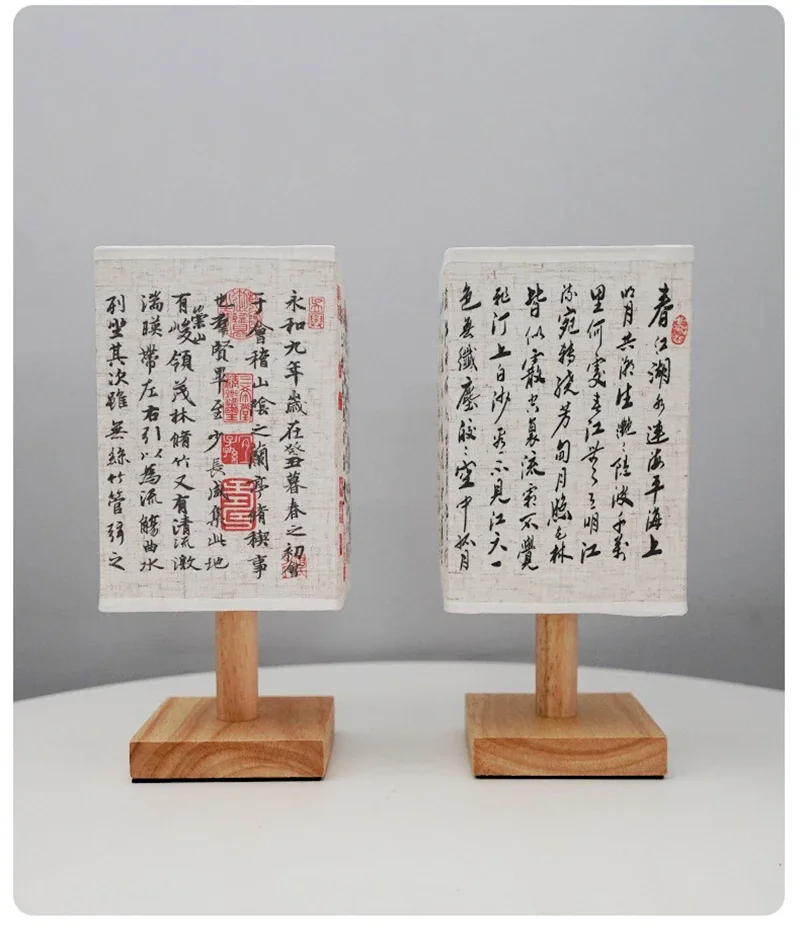 永和九年歲在癸丑暮春之初會
于會稽山陰之蘭亭脩稧事
也羣賢畢至少長咸集此地
有崇山峻領茂林脩竹又有清流激
湍暎帶左右引以為流觴曲水
列坐其次雖無絲竹管弦之
三希堂
精鑑璽
春江潮水連海平海上
明月共潮生灩〻隨波千萬
里何處春江無月明江
流宛轉繞芳甸月照花林
皆似霰空裏流霜不覺
飛汀上白沙看不見江天一
色無纖塵皎〻空中孤月